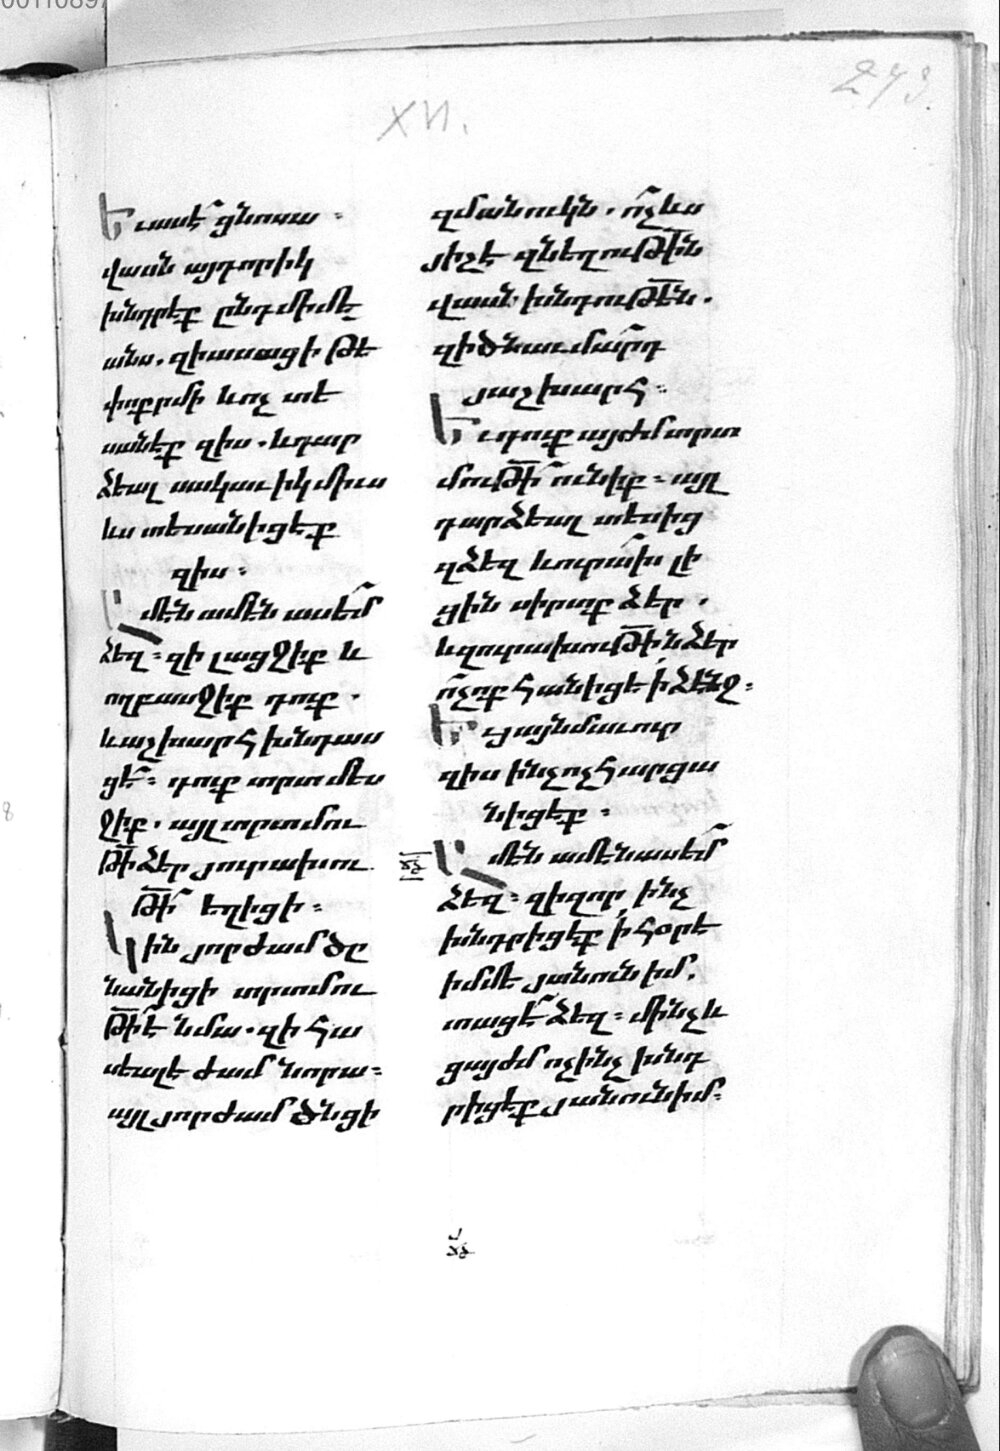 XVI.
273.
Եւ ասէ ցնոսա .
վասն այդորիկ
խնդրէք ընդ միմե
անս . զի ասացի թե
փոքր մի և ոչ տե
սանէք զիս . և դար
ձեալ սակաւիկ միւս
ևս տեսանիցէք
զիս :
Ամէն ամէն ասեմ
ձեզ : զի լայցջիք և
ողբասջիք դուք .
և աշխարհ խնդաս
ցէ : դուք տրտմես
ջիք . այլ տրտմու
թի ձեր յուրախու
թի եղիցի :
Կին յորժամ ծը
նանիցի տրտմու
թի է նմա . զի հա
սեալ է ժամ նորա :
այլ յորժամ ծնցի
զմանուկն . ոչ ևս
յիշէ զնեղութին
վասն խնդութեն .
զի ծնաւ մարդ
յաշխարհ :
Եւ դուք այժմ տրտ
մութի ունիք : այլ
դարձեալ տեսից
զձեզ և ուրախ լի
ցին սիրտք ձեր .
և զուրախութին ձեր
ոչ ոք հանիցէ ի ձէնջ :
Եւ յայնմ աւուր
զիս ինչ ոչ հարցա
նիցէք :
Ամէն ամէն ասեմ
ձեզ : զի զոր ինչ
խնդրիցէք ի հօրէ
իմմէ յանուն իմ .
տացէ ձեզ : մինչև
ցայժմ ոչինչ խնդ
րիցէք յանուն իմ :